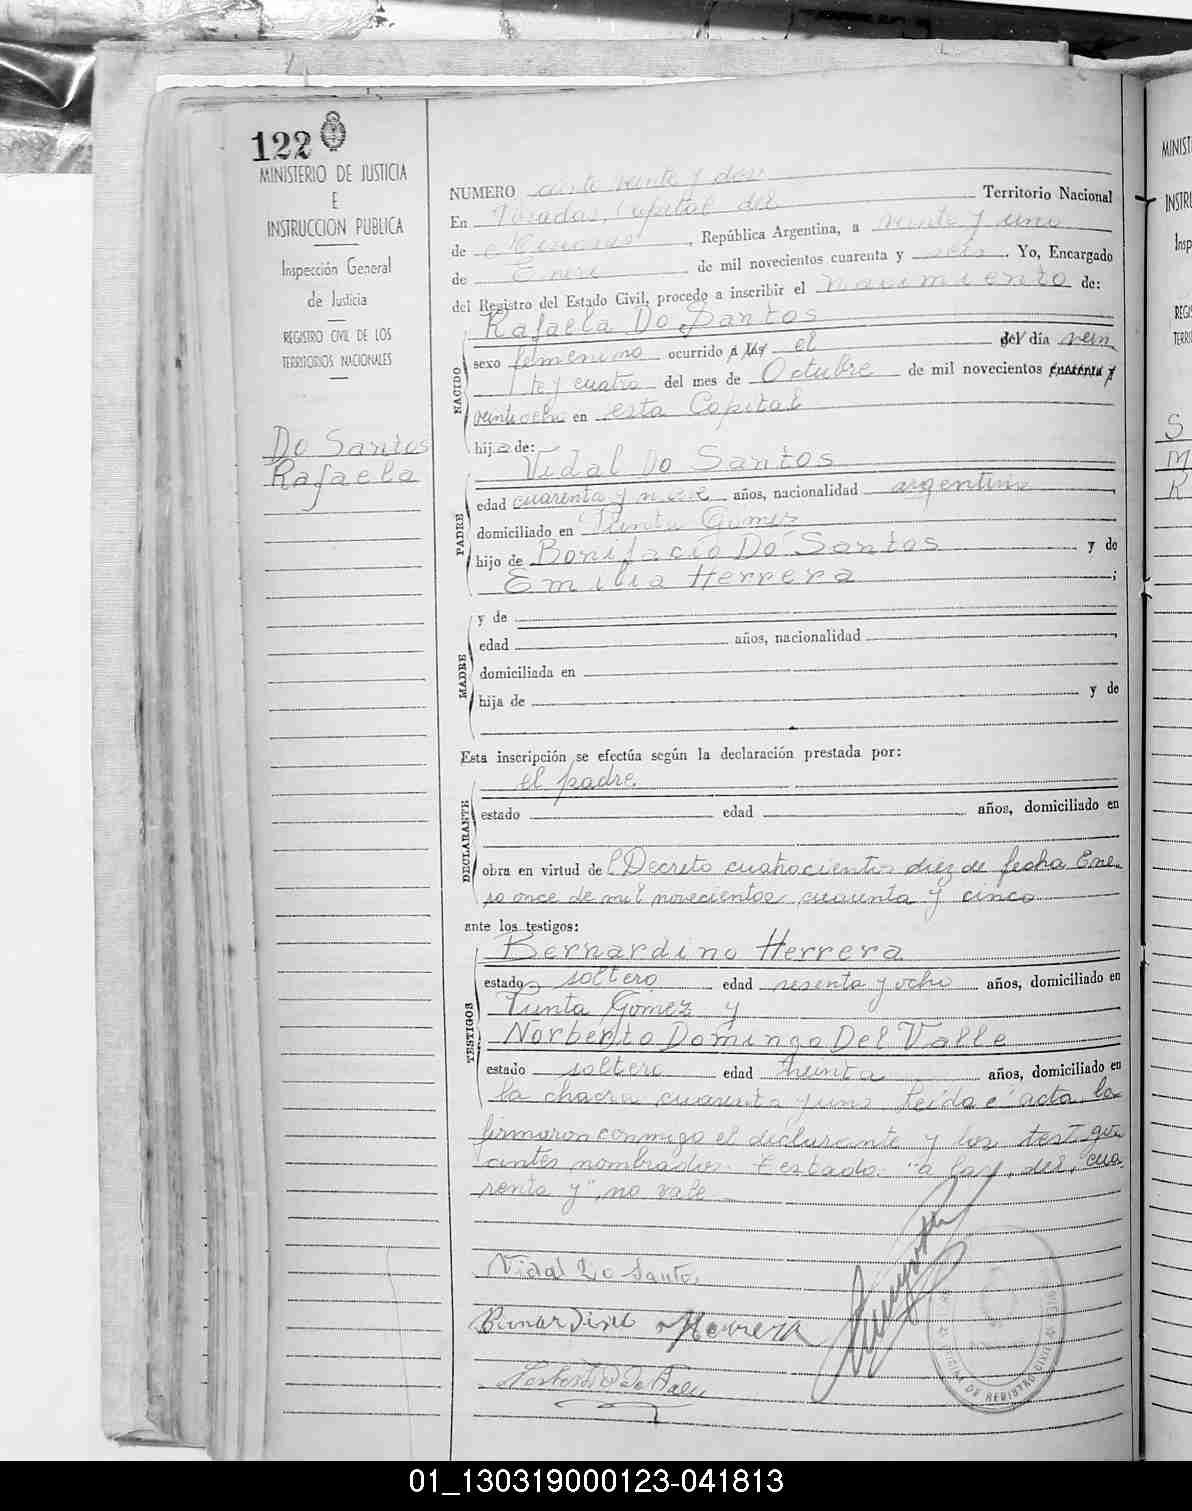 122
MINISTERIO DE JUSTICIA
E
INSTRUCCION PUBLICA
Inspección General
de Justicia
REGISTRO CIVIL DE LOS
TERRITORIOS NACIONALES
Do Santos
Rafaela
NUMERO ciento veinte y dos
En Posadas, Capital del Territorio Nacional
de Misiones, República Argentina, a veinte y uno
de Enero de mil novecientos cuarenta y seis. Yo, Encargado
del Registro del Estado Civil, procedo a inscribir el nacimiento de:
Rafaela Do Santos
NACIDO
sexo femenino ocurrido a las el del día vein
te y cuatro del mes de Octubre de mil novecientos cuarenta y
veinteocho en esta Capital
hija de:
Vidal Do Santos
PADRE
edad cuarenta y nueve años, nacionalidad argentino,
domiciliado en Punta Gomez
hijo de Bonifacio Do Santos y de
Emilia Herrera;
MADRE
y de
edad años, nacionalidad,
domiciliada en
hija de y de
Esta inscripción se efectúa según la declaración prestada por:
el padre.
DECLARANTE
estado edad años, domiciliado en
obra en virtud de Decreto cuatrocientos diez de fecha Ene-
ro once de mil novecientos cuarenta y cinco
ante los testigos:
Bernardino Herrera
TESTIGOS
estado soltero edad sesenta y ocho años, domiciliado en
Punta Gomez y
Norberto Domingo Del Valle
estado soltero edad treinta años, domiciliado en
la chacra cuarenta y uno. Leída el acta, la
firmaron conmigo el declarante y los testigos
antes nombrados. Testado: "a las, del, cua
renta y", no vale
Vidal Do Santos
Bernardino Herrera
OFICINA DE REGISTRO CIVIL
MINIST
INSTRU
Insp
REGI
TERRI
S
M
R
01_130319000123-041813